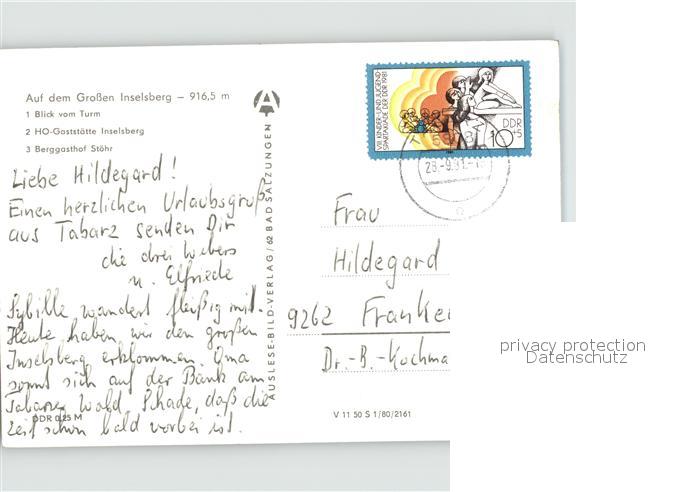 Auf dem Großen Inselsberg – 916,5 m
1 Blick vom Turm
2 HO-Gaststätte Inselsberg
3 Berggasthof Stöhr
Liebe Hildegard!
Einen herzlichen Urlaubsgruß
aus Tabarz senden Dir
die drei Webers
u. Elfriede
Sybille wandert fleißig mit.
Heute haben wir den großen
Inselsberg erklommen. Oma
sonnt sich auf der Bank am
Tabarzer Wald. Schade, daß die
Zeit schon bald vorbei ist.
DDR 0,25 M
AUSLESE-BILD-VERLAG/62 BAD SALZUNGEN
VIII. KINDER- UND JUGEND-
SPARTAKIADE DER DDR 1981
DDR
10+5
Frau
Hildegard
9262 Franken
Dr.-B.-Kochma
V 11 50 S 1/80/2161
privacy protection
Datenschutz